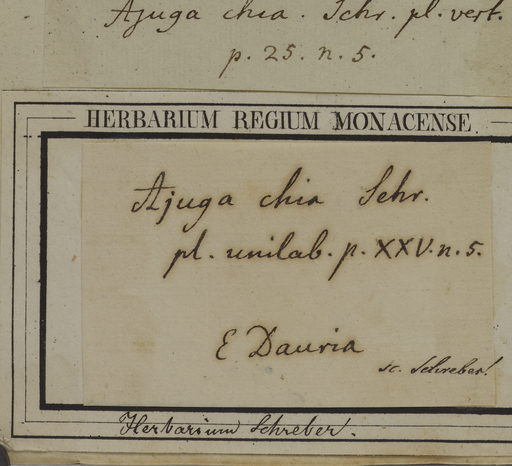 Ajuga chia. Schr. pl. vert.
p. 25. n. 5.
HERBARIUM REGIUM MONACENSE
Ajuga chia Schr.
pl. unilab. p. XXV. n. 5.
E Dauria
sc. Schreber!
Herbarium Schreber.